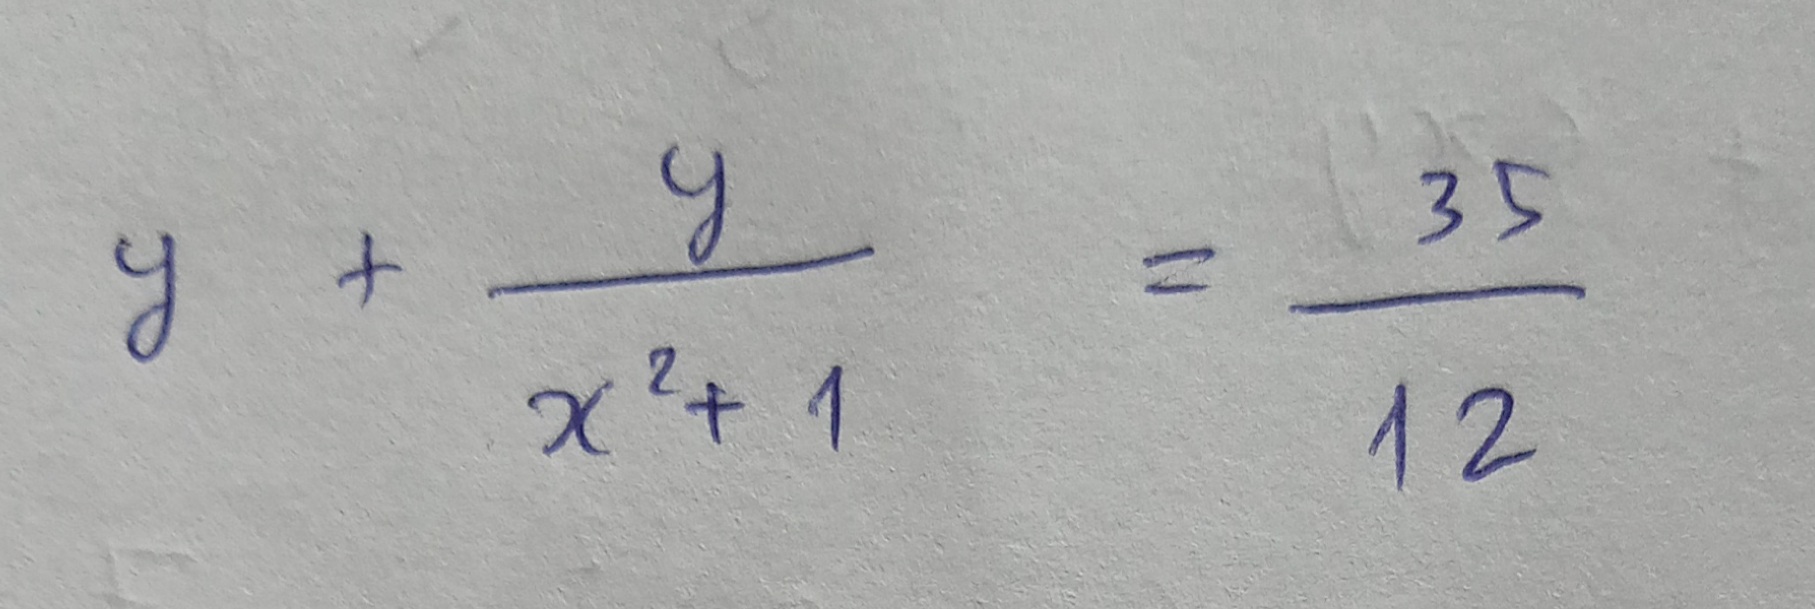 y + y/(x²+1) = 35/12